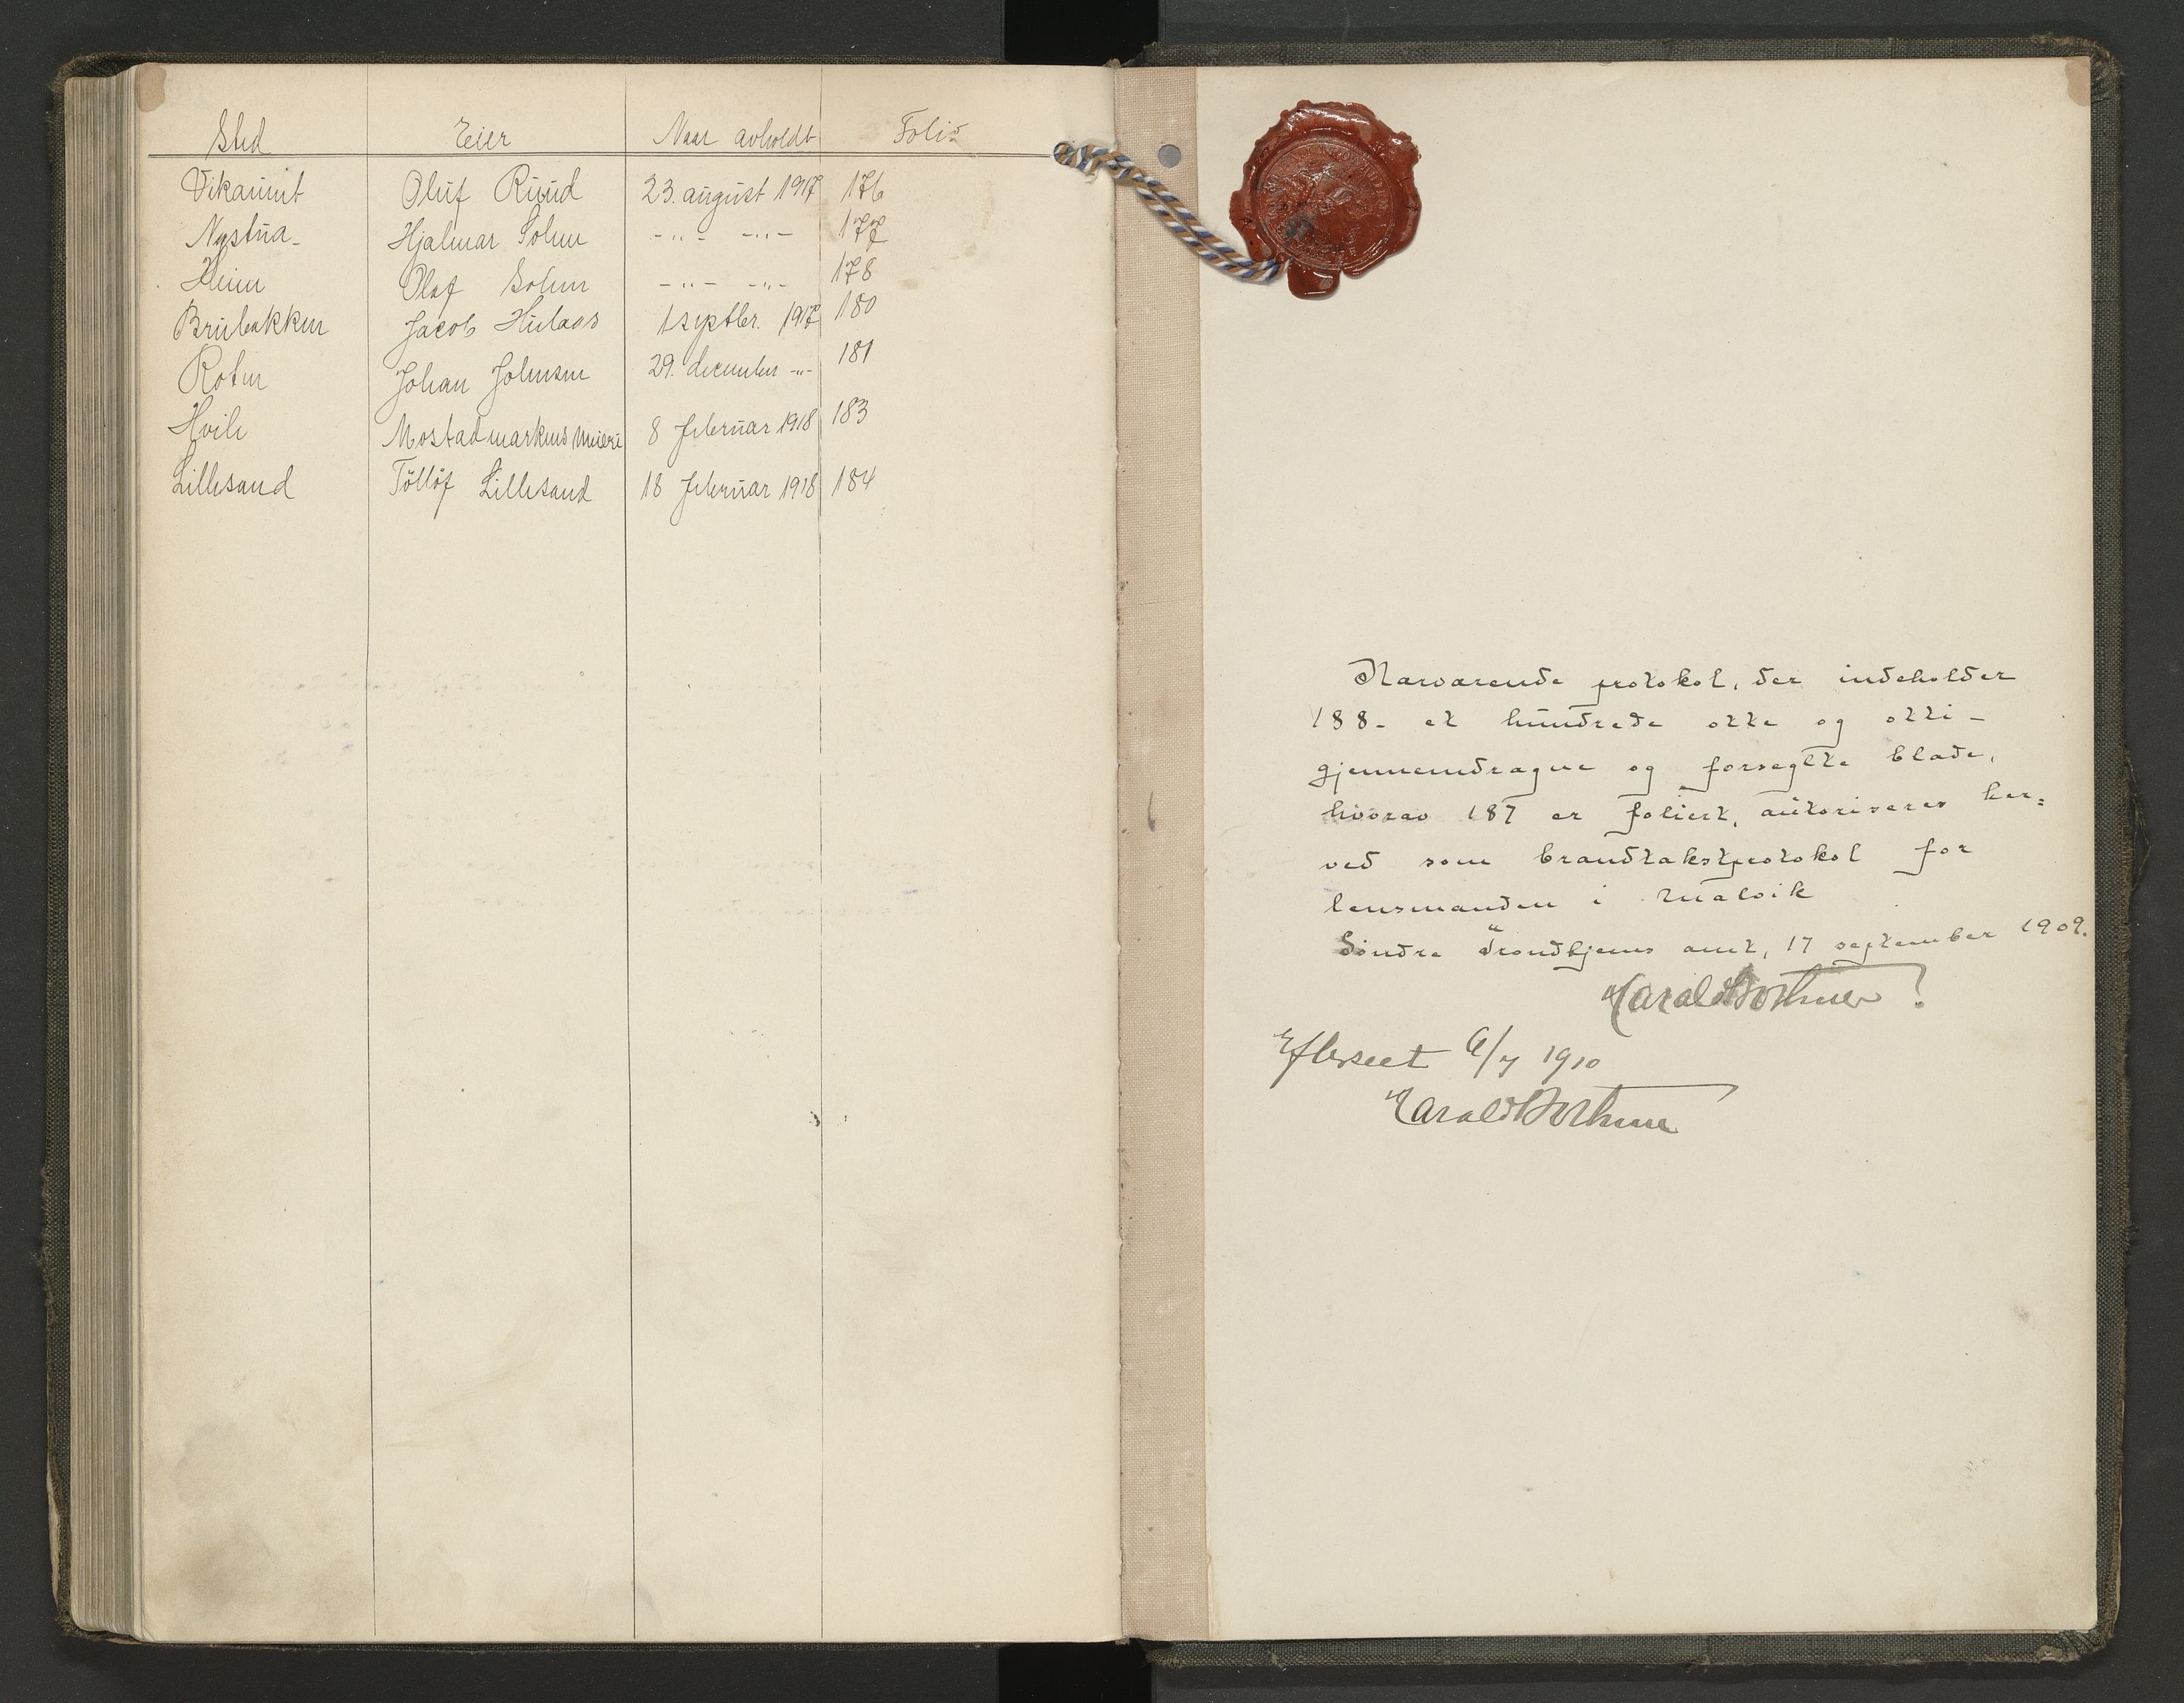 Sted Eier Naar avholdt Folio
Vikaunet Oluf Ruud 23. august 1917 176
Nystua Hjalmar Solem -"- -"- 177
Heim Olaf Solem -"- -"- 178
Brubakken Jacob Hulaas 1 septbr. 1917 180
Roten Johan Johnsen 29. december -"- 181
Hvile Mostadmarkens Meieri 8 februar 1918 183
Lillesand Tollöf Lillesand 18 februar 1918 184
Nærværende protokol, der indeholder
188 - et hundrede otte og otti -
gjennemdragne og forseglte blade,
hvorav 187 er foliert, autoriseres her=
ved som brandtakstprotokol for
lensmanden i Malvik
Söndre Trondhjems amt, 17 september 1909.
Harald Bothner
Efterseet 6/7 1910
Harald Bothner